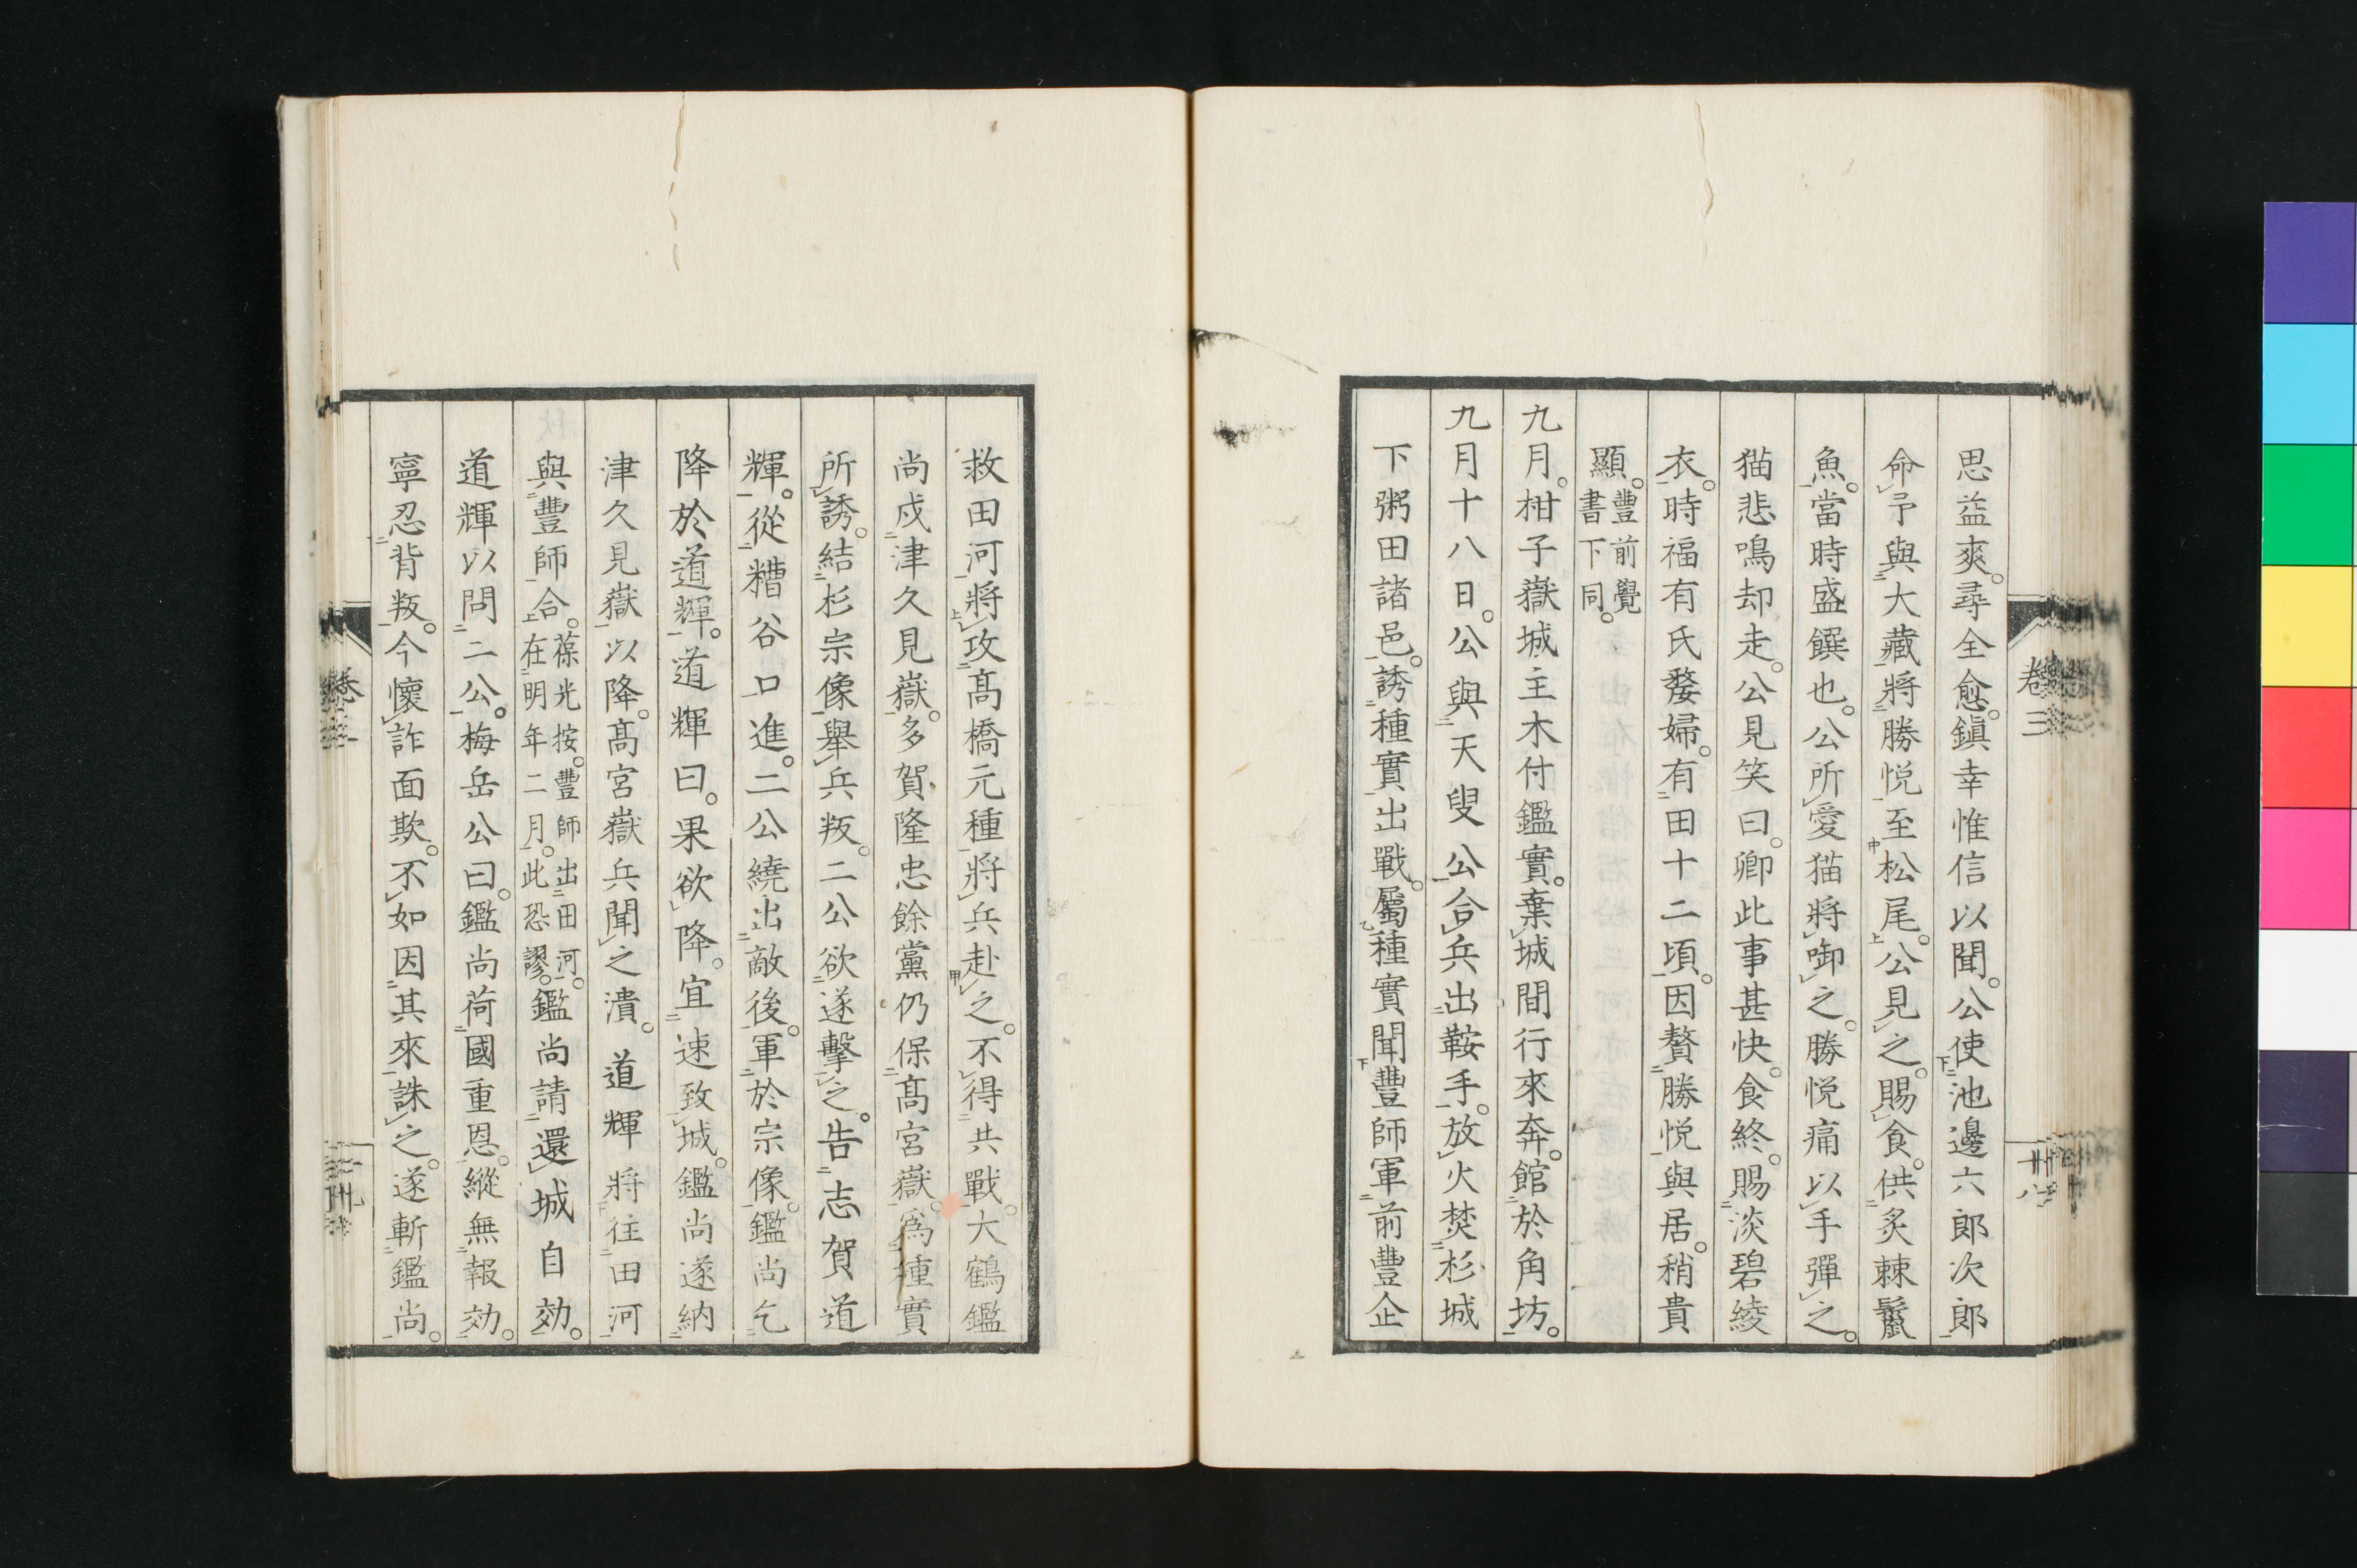 思益爽。尋全愈。鎮幸惟信以聞。公使池邊六郎次郎
命予與大藏將勝悦至松尾。公見之。賜食。供炙棘鬣
魚。當時盛饌也。公所愛猫將啣之。勝悦痛以手彈之。
猫悲鳴却走。公見笑曰。卿此事甚快。食終。賜淡碧綾
衣。時福有氏婺婦。有田十二頃。因贅勝悦與居。稍貴
顯。豐前覺書下同。
九月。柑子嶽城主木付鑑實。棄城間行來奔。館於角坊。
九月十八日。公與天叟公合兵出鞍手。放火焚杉城
下粥田諸邑。誘種實出戰。屬種實聞豐師軍前豐企
救田河將攻髙橋元種將兵赴之。不得共戰。大鶴鑑
尚戍津久見嶽。多賀隆忠餘黨仍保髙宮嶽。爲種實
所誘。結杉宗像舉兵叛。二公欲遂擊之。告志賀道
輝。從糟谷口進。二公繞出敵後。軍於宗像。鑑尚乞
降於道輝。道輝曰。果欲降。宜速致城。鑑尚遂納
津久見嶽以降。髙宮嶽兵聞之潰。道輝將往田河
與豐師合。葆光按。豐師出田河。在明年二月。此恐謬。鑑尚請還城自効。
道輝以問二公。梅岳公曰。鑑尚荷國重恩。縱無報効。
寧忍背叛。今懷詐面欺。不如因其來誅之。遂斬鑑尚。
卷三
廿八